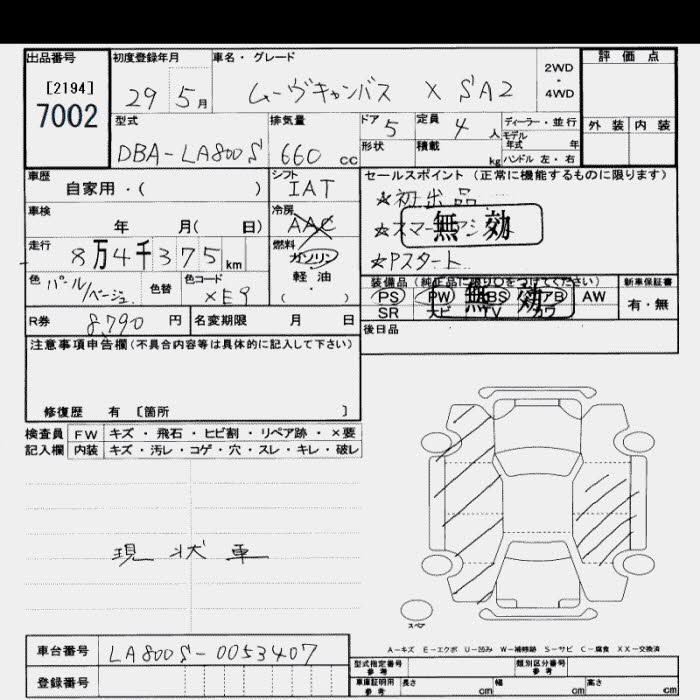 出品番号
[2194]
7002
初度登録年月
29 5月
車名・グレード
ムーヴキャンバス X SA2
2WD
・
4WD
評価点
外装 内装
型式
DBA-LA800S
排気量
660 cc
ドア 5
定員 4 人
ディーラー・並行
モデル年式 年
形状
積載 kg
ハンドル 左・右
車歴
自家用・( )
シフト
IAT
車検
年 月( 日)
冷房
AAC
走行
8万4千375km
燃料
ガソリン
軽油
・
( )
色
パール/ベージュ
色替
色コード
XE9
R券 8,790 円
名変期限 月 日
セールスポイント (正常に機能するものに限ります)
☆初出品
☆スマートアシスト
無効
☆Pスタート
装備品 (純正品に限り○をつけてください)
PS PW ABS アB AW
無効
SR ナビ TV カワ
新車保証書
有・無
後日品
注意事項申告欄(不具合内容等は具体的に記入して下さい)
修復歴 有 〔箇所 〕
検査員記入欄
FW キズ・飛石・ヒビ割・リペア跡・×要
内装 キズ・汚レ・コゲ・穴・スレ・キレ・破レ
現状車
スペア
A-キズ E-エクボ U-凹み W-補修跡 S-サビ C-腐食 XX-交換済
車台番号 LA800S-0053407
登録番号
型式指定番号 参考
類別区分番号 参考
車庫証明用 参考
長さ cm 幅 cm 高さ cm